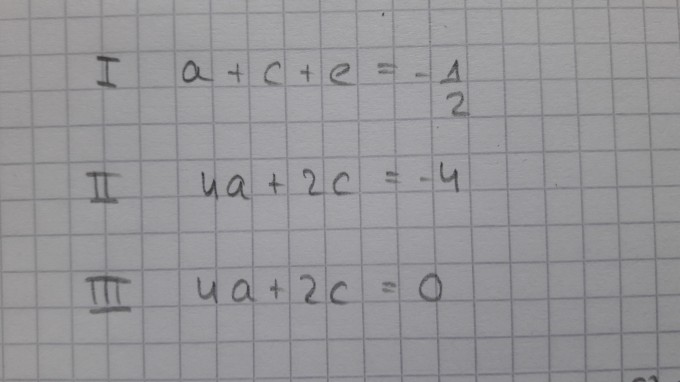 I a + c + e = -1/2
II 4a + 2c = -4
III 4a + 2c = 0